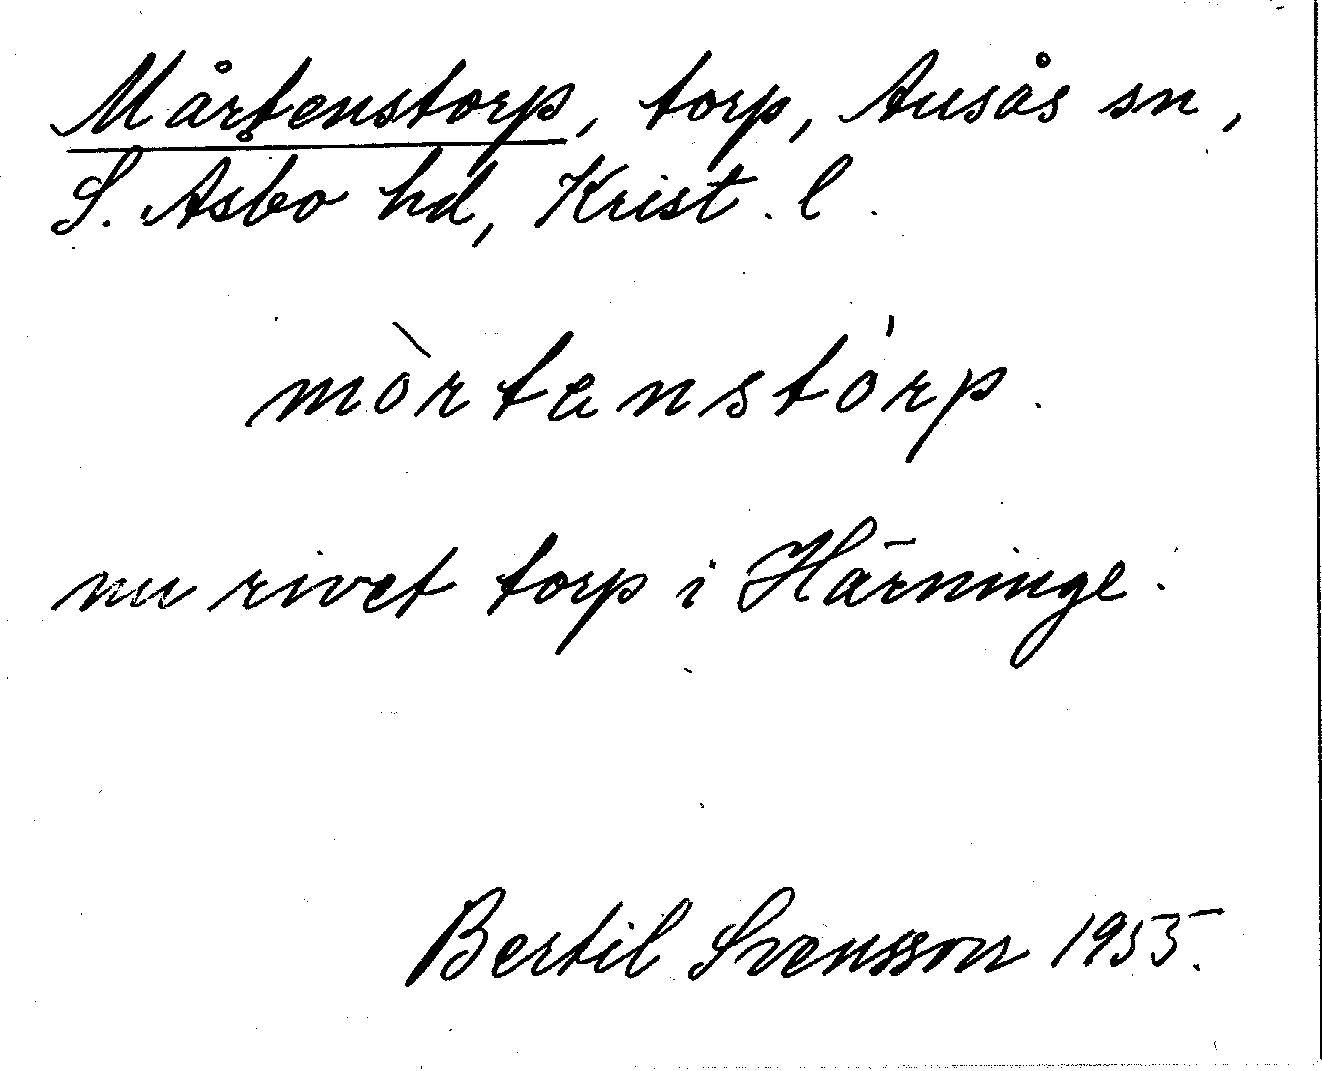 Mårtenstorp, torp, Ausås sn,
S. Åsbo hd, Krist. l.
mòrtanstórp.
nu rivet torp i Härninge.
Bertil Svensson 1955.